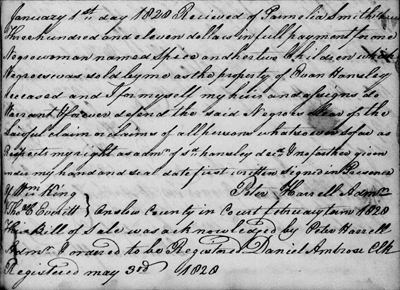 January 1st day 1828 Recieved of Pamelia Smith three
Three hundred and eleven dollars in full payment for one
Negro woman named Spice and her two Children which
Negroes was sold by me as the property of Evan Hansley
deceased and I for myself my heirs and assigns do
Warrant & forever defend the said Negroes clear of the
Lawful claim or claims of all persons whatsoever so far as
respects my right as admr of sd hansley decd In testimony given
under my hand and seal date first written signed in Presence
of Wm King Peter Harrell Admr
Thos E Everett } Onslow County in Court february term 1828
this Bill of Sale was acknowledged by Peter Harrell
Admr & ordered to be Registered Daniel Ambrose Clk
Registered may 3rd 1828